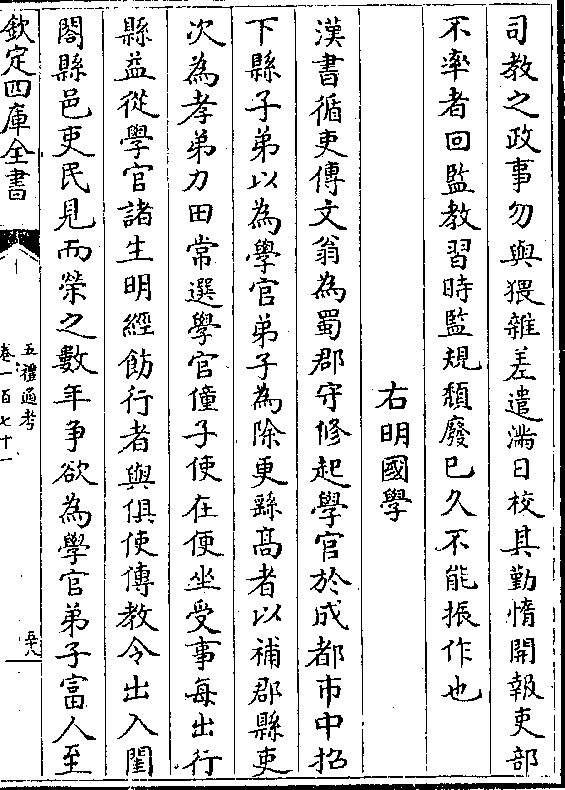 司教之政事勿與猥雜差遣滿日校其勤惰開報吏部
不率者回監教習時監規頽廢已久不能振作也
右明國學
漢書循吏傳文翁為蜀郡守修起學官於成都市中招
下縣子弟以為學官弟子為除更繇髙者以補郡縣吏
次為孝弟力田常選學官僮子使在便坐受事每出行
縣益從學官諸生明經飭行者與俱使傳教令出入閨
閤縣邑吏民見而榮之數年爭欲為學官弟子富人至
欽定四庫全書
五禮通考
卷一百七十一
五十八